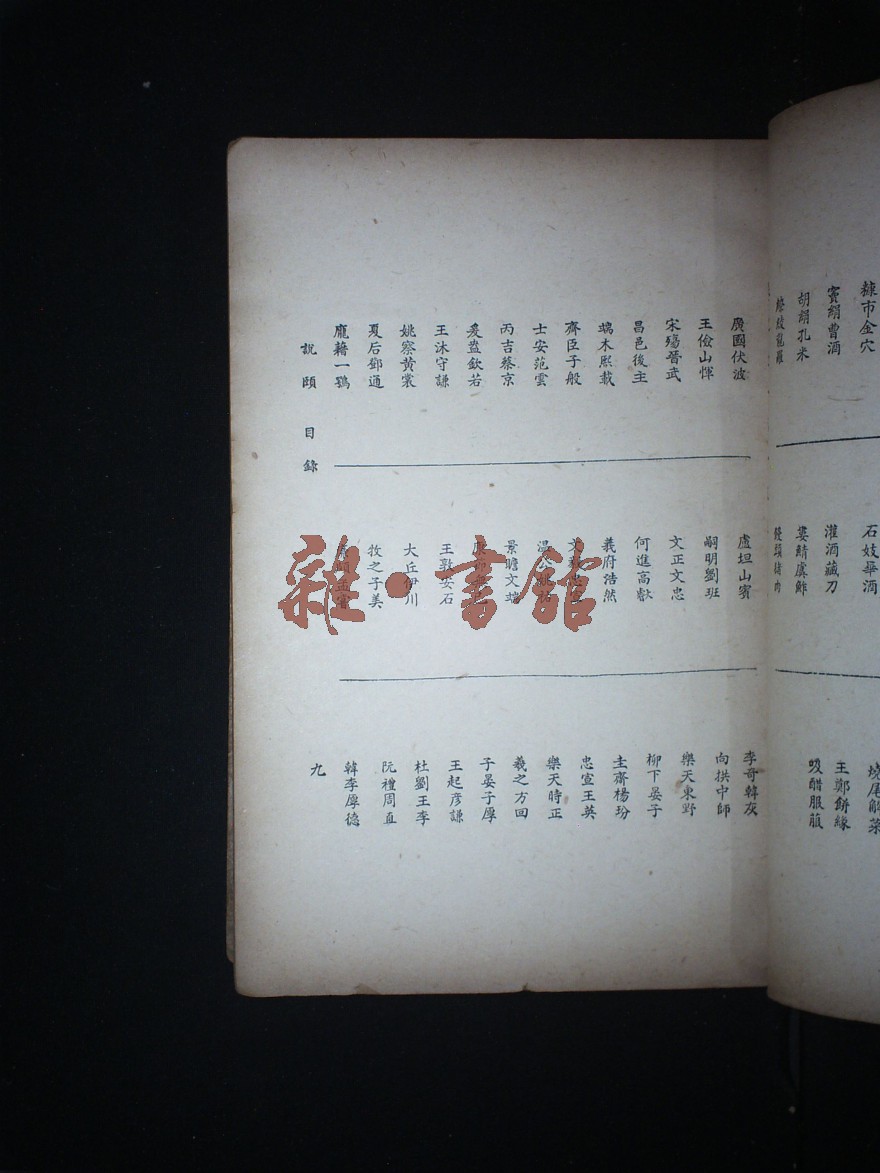 糠市金穴
竇絹曹酒
胡絹孔米
石妓畢酒
灌酒藏刀
婁鯖虞鮓
饅頭豬肉
燒尾
王鄭餅緣
吸醋服菔
廣國伏波
王儉山惲
宋殤晉武
昌邑後主
端木熙載
齊臣于般
士安范雲
丙吉蔡京
爰盎欽若
王沐守謙
姚察黃裳
夏后鄧通
龐藉一鶚
盧坦山賓
嗣明劉班
文正文忠
何進高歡
義府浩然
文
温公
景瞻文端
王敦安石
大丘伊川
牧之子美
李奇韓灰
向拱中師
樂天東野
柳下晏子
圭齋楊玢
忠宣王英
樂天時正
羲之方回
子晏子厚
王起彥謙
杜劉王李
阮禮周直
韓李厚德
說頤 目錄
九
雜·書館